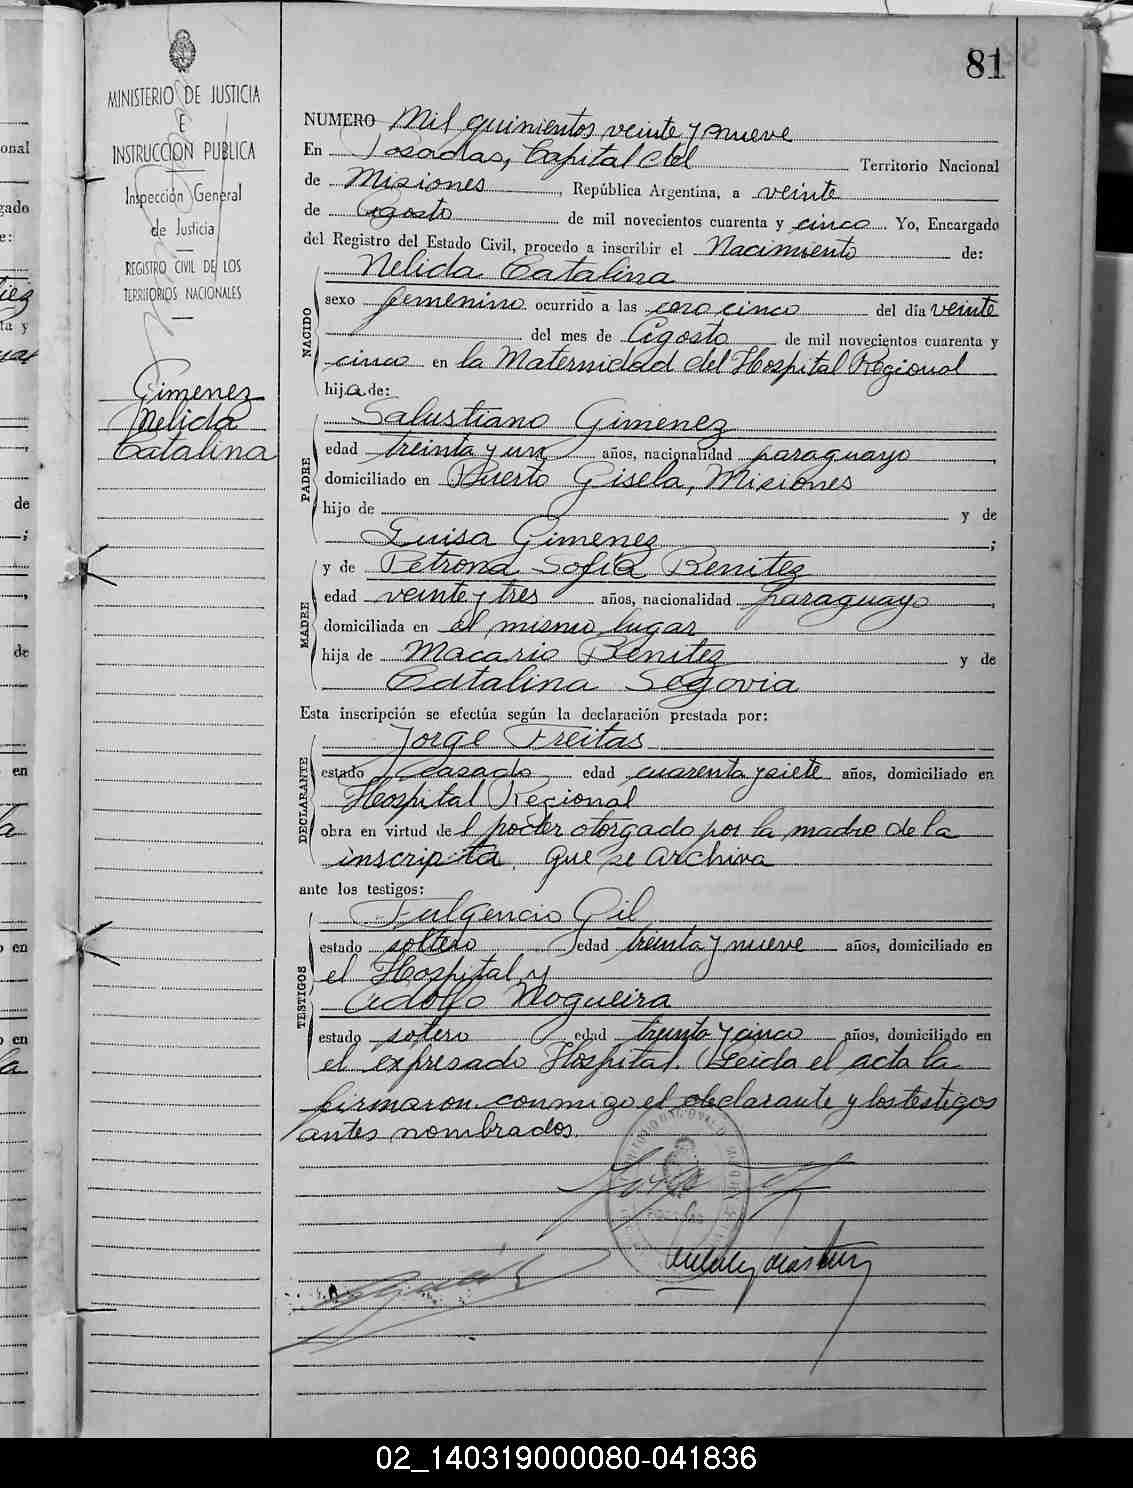 81
MINISTERIO DE JUSTICIA
E
INSTRUCCIÓN PÚBLICA
Inspección General
de Justicia
REGISTRO CIVIL DE LOS
TERRITORIOS NACIONALES
Gimenez
Nelida
Catalina
NUMERO Mil quinientos veinte y nueve
En Posadas, Capital del Territorio Nacional
de Misiones, República Argentina, a veinte
de Agosto de mil novecientos cuarenta y cinco. Yo, Encargado
del Registro del Estado Civil, procedo a inscribir el Nacimiento de:
NACIDO
Nelida Catalina
sexo femenino ocurrido a las cero cinco del día veinte
del mes de Agosto de mil novecientos cuarenta y
cinco en la Maternidad del Hospital Regional
hija de:
PADRE
Salustiano Gimenez
edad treinta y un años, nacionalidad paraguayo,
domiciliado en Puerto Gisela, Misiones
hijo de y de
Luisa Gimenez;
MADRE
y de Petrona Sofia Benitez
edad veinte y tres años, nacionalidad paraguayo,
domiciliada en el mismo lugar
hija de Macario Benitez y de
Catalina Segovia
Esta inscripción se efectúa según la declaración prestada por:
DECLARANTE
Jorge Freitas
estado casado edad cuarenta y siete años, domiciliado en
Hospital Regional
obra en virtud del poder otorgado por la madre de la
inscripta que se archiva
ante los testigos:
TESTIGOS
Fulgencio Gil
estado soltero edad treinta y nueve años, domiciliado en
el Hospital y
Adolfo Nogueira
estado sotero edad treinta y cinco años, domiciliado en
el expresado Hospital. Leida el acta la
firmaron conmigo el declarante y los testigos
antes nombrados.
02_140319000080-041836